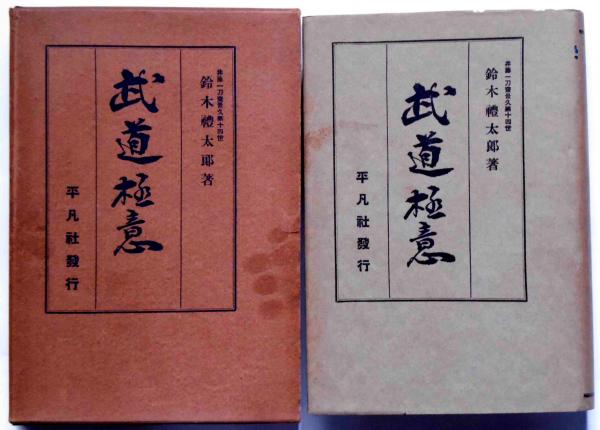 井藤一刀齋景久第十四世
鈴木禮太郎著
武道極意
平凡社發行
井藤一刀齋景久第十四世
鈴木禮太郎著
武道極意
平凡社發行